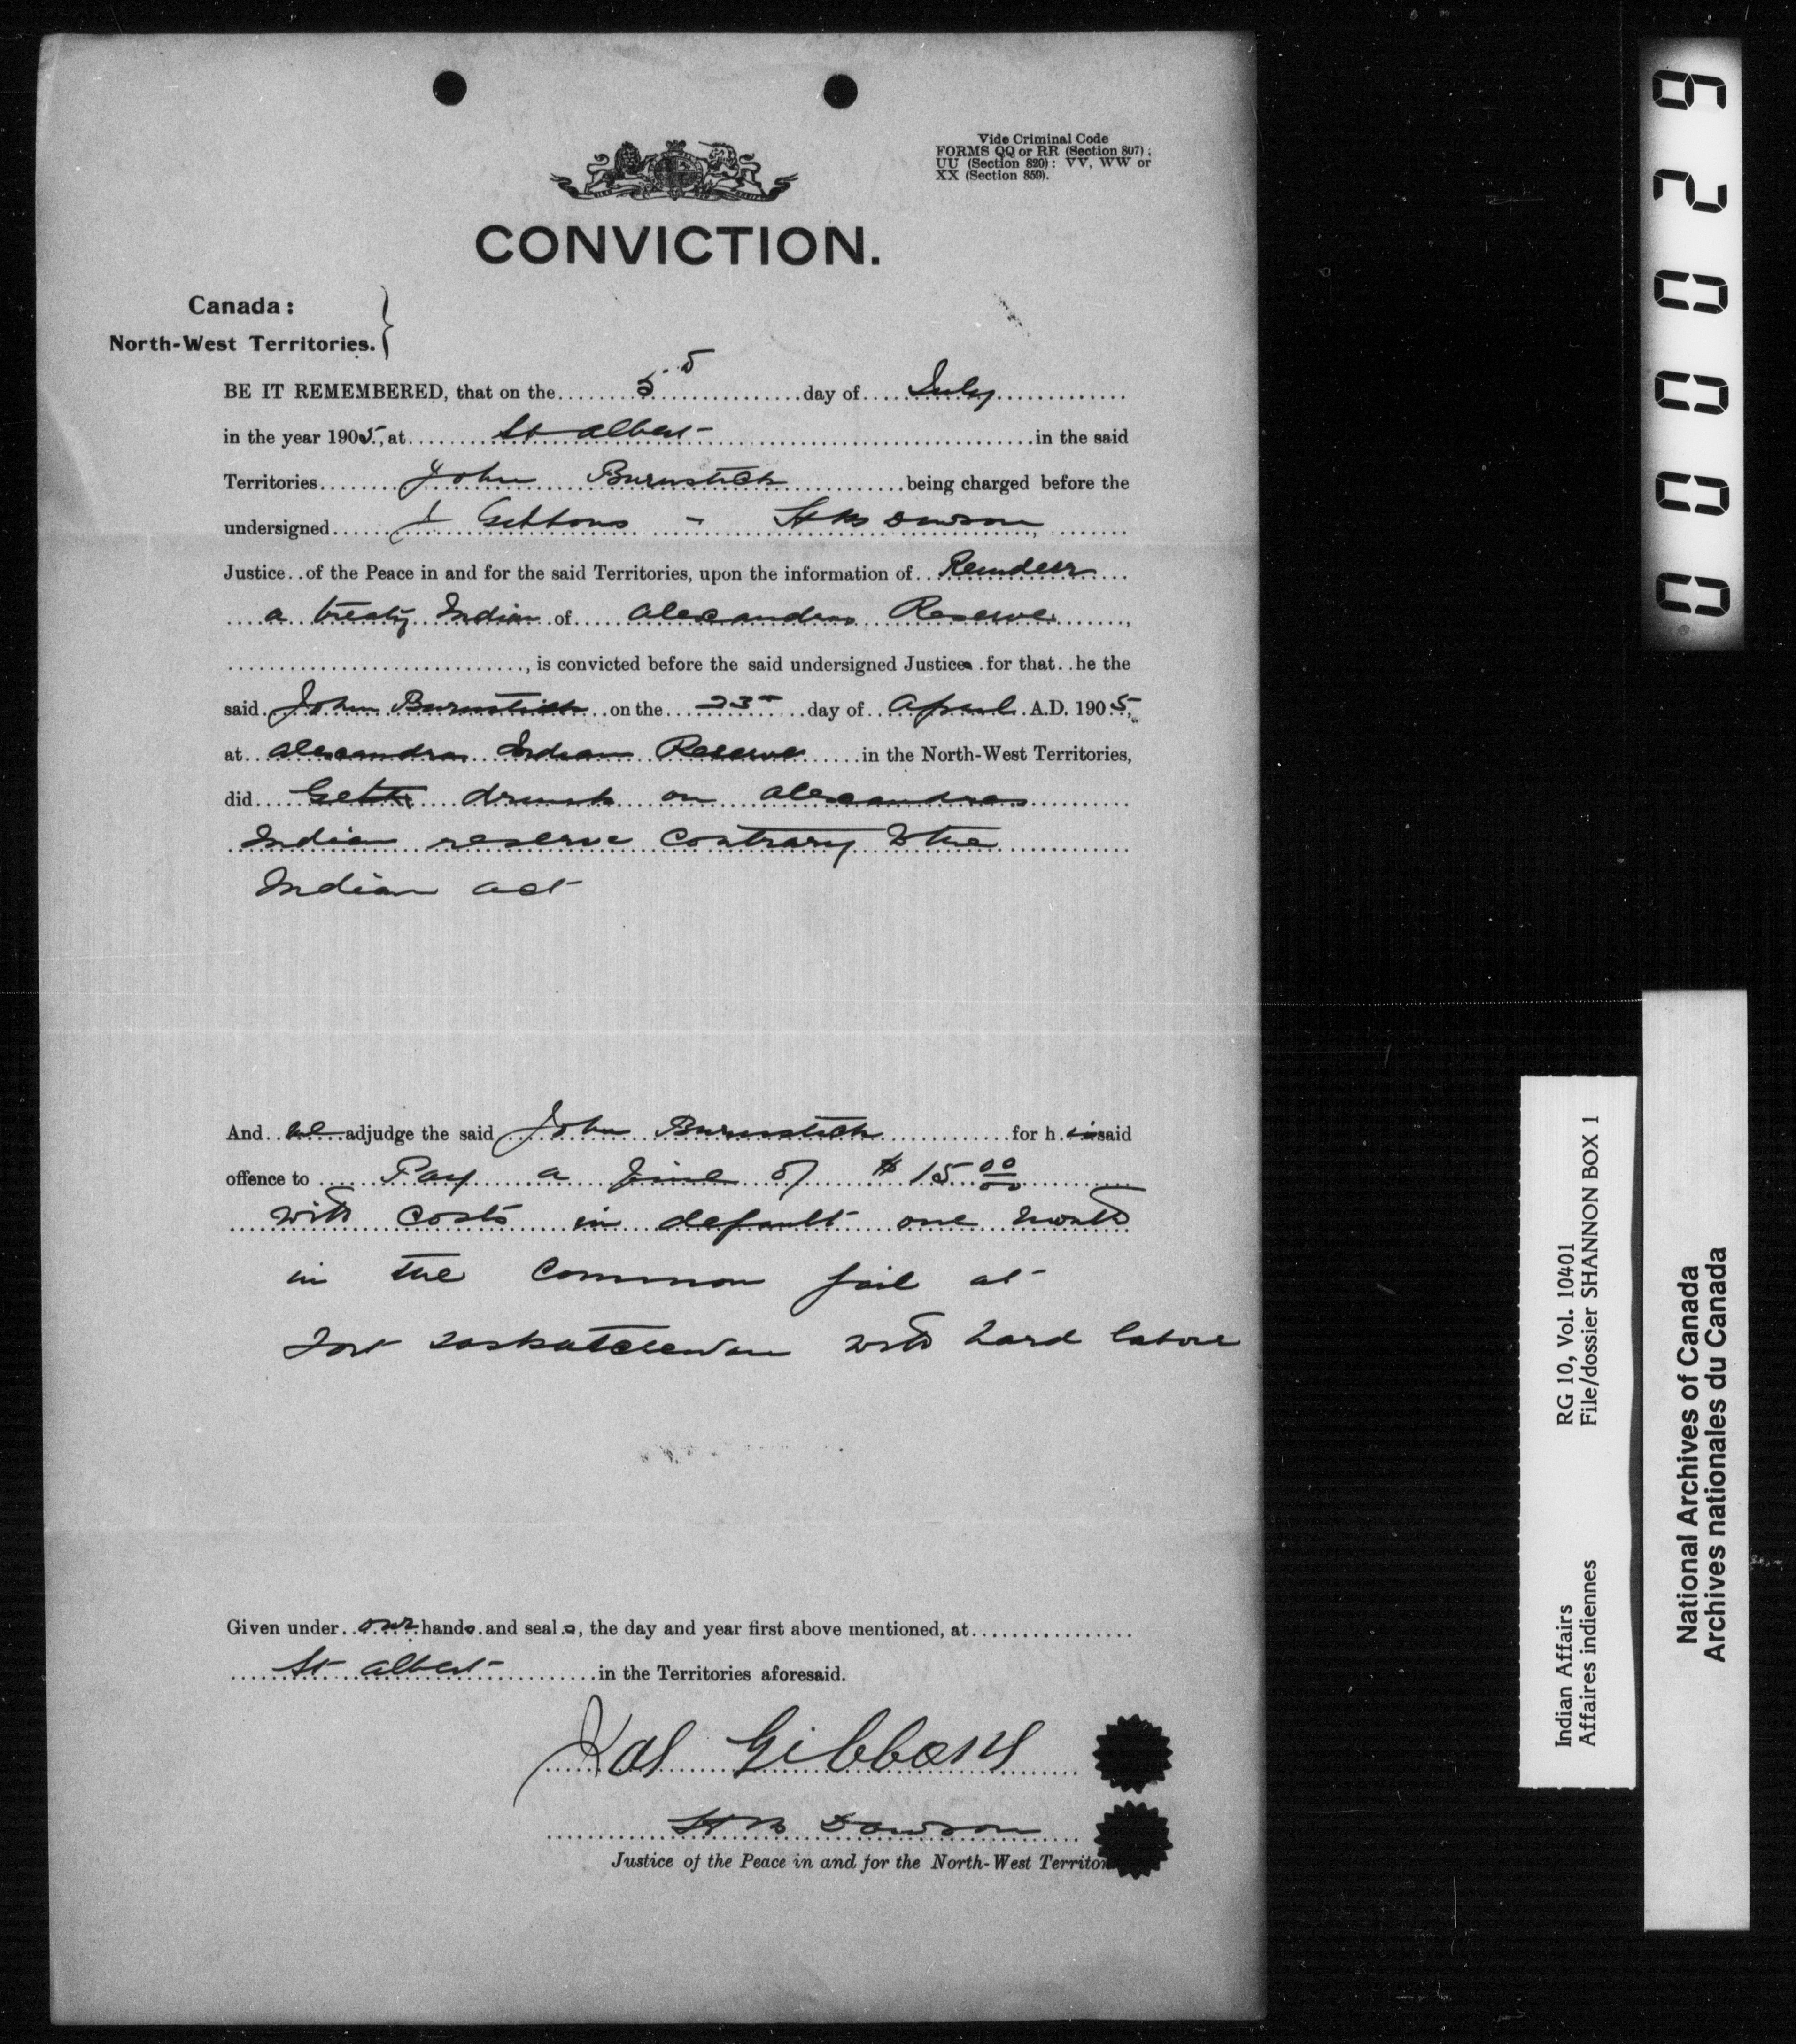 Vide Criminal Code
FORMS QQ or RR (Section 807);
UU (Section 820): VV, WW or
XX (Section 859).
CONVICTION.
Canada:
North-West Territories.
BE IT REMEMBERED, that on the 5th day of July
in the year 1905, at St Albert in the said
Territories John Burnstick being charged before the
undersigned J Gibbons - H W Dawson,
Justice of the Peace in and for the said Territories, upon the information of Reindeer
a treaty Indian of Alexandras Reserve,
, is convicted before the said undersigned Justices for that he the
said John Burnstick on the 23rd day of April A.D. 1905,
at Alexandras Indian Reserve in the North-West Territories,
did Get drunk on Alexandras
Indian reserve contrary to the
Indian act
And we adjudge the said John Burnstick for his said
offence to Pay a fine of $15.00
with costs in default one month
in the Common jail at
Fort Saskatchewan with hard labour
Given under our hands and seals, the day and year first above mentioned, at
St Albert in the Territories aforesaid.
Jas Gibbons
Dawson
Justice of the Peace in and for the North-West Territor
620000
RG 10, Vol. 10401
File/dossier SHANNON BOX 1
Indian Affairs
Affaires indiennes
National Archives of Canada
Archives nationales du Canada